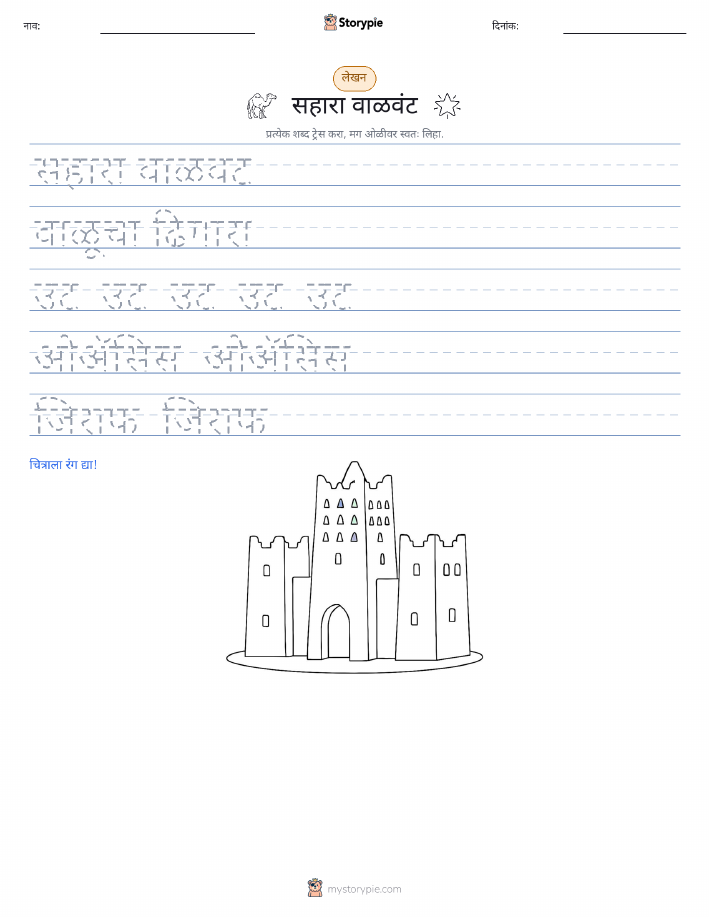 नाव:
Storypie
दिनांक:
लेखन
सहारा वाळवंट
प्रत्येक शब्द ट्रेस करा, मग ओळीवर स्वतः लिहा.
सहारा वाळवट
वाळूचा ढिगारा
उट उट उट उट उट
ओॲसिस ओॲसिस
जिराफ जिराफ
चित्राला रंग द्या!
mystorypie.com